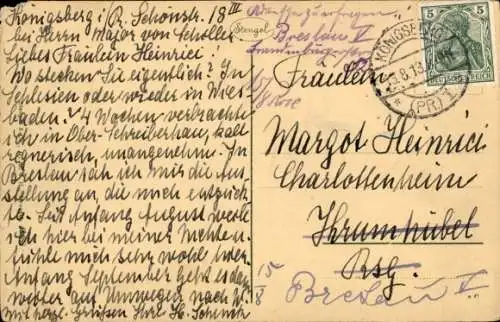 Königsberg i/R. Schönstr. 18 III
bei Herrn Major von Scholler
Liebes Fräulein Heinrici!
Wo stecken Sie eigentlich? In
Schlesien oder wieder in Wies
baden? 4 Wochen verbrachte
ich in Ober-Schreiberhau, kalt
regnerisch, unangenehm. In
Breslau sah ich mir die Aus
stellung an, die mich entzück
te. Seit Anfang August weile
ich hier bei meiner Nichte
fühle mich sehr wohl hier
Anfang September geht es dann
weiter auf Umwegen nach
mit herzl. Grüßen Ihre H.
Stengel
Breslau V
KÖNIGSBERG
8.13
(PR) 1
5 5
DEUTSCHES REICH
Fräulein
Margot Heinrici
Charlottenheim
Krummhübel
Rsg.
15
8
Breslau V